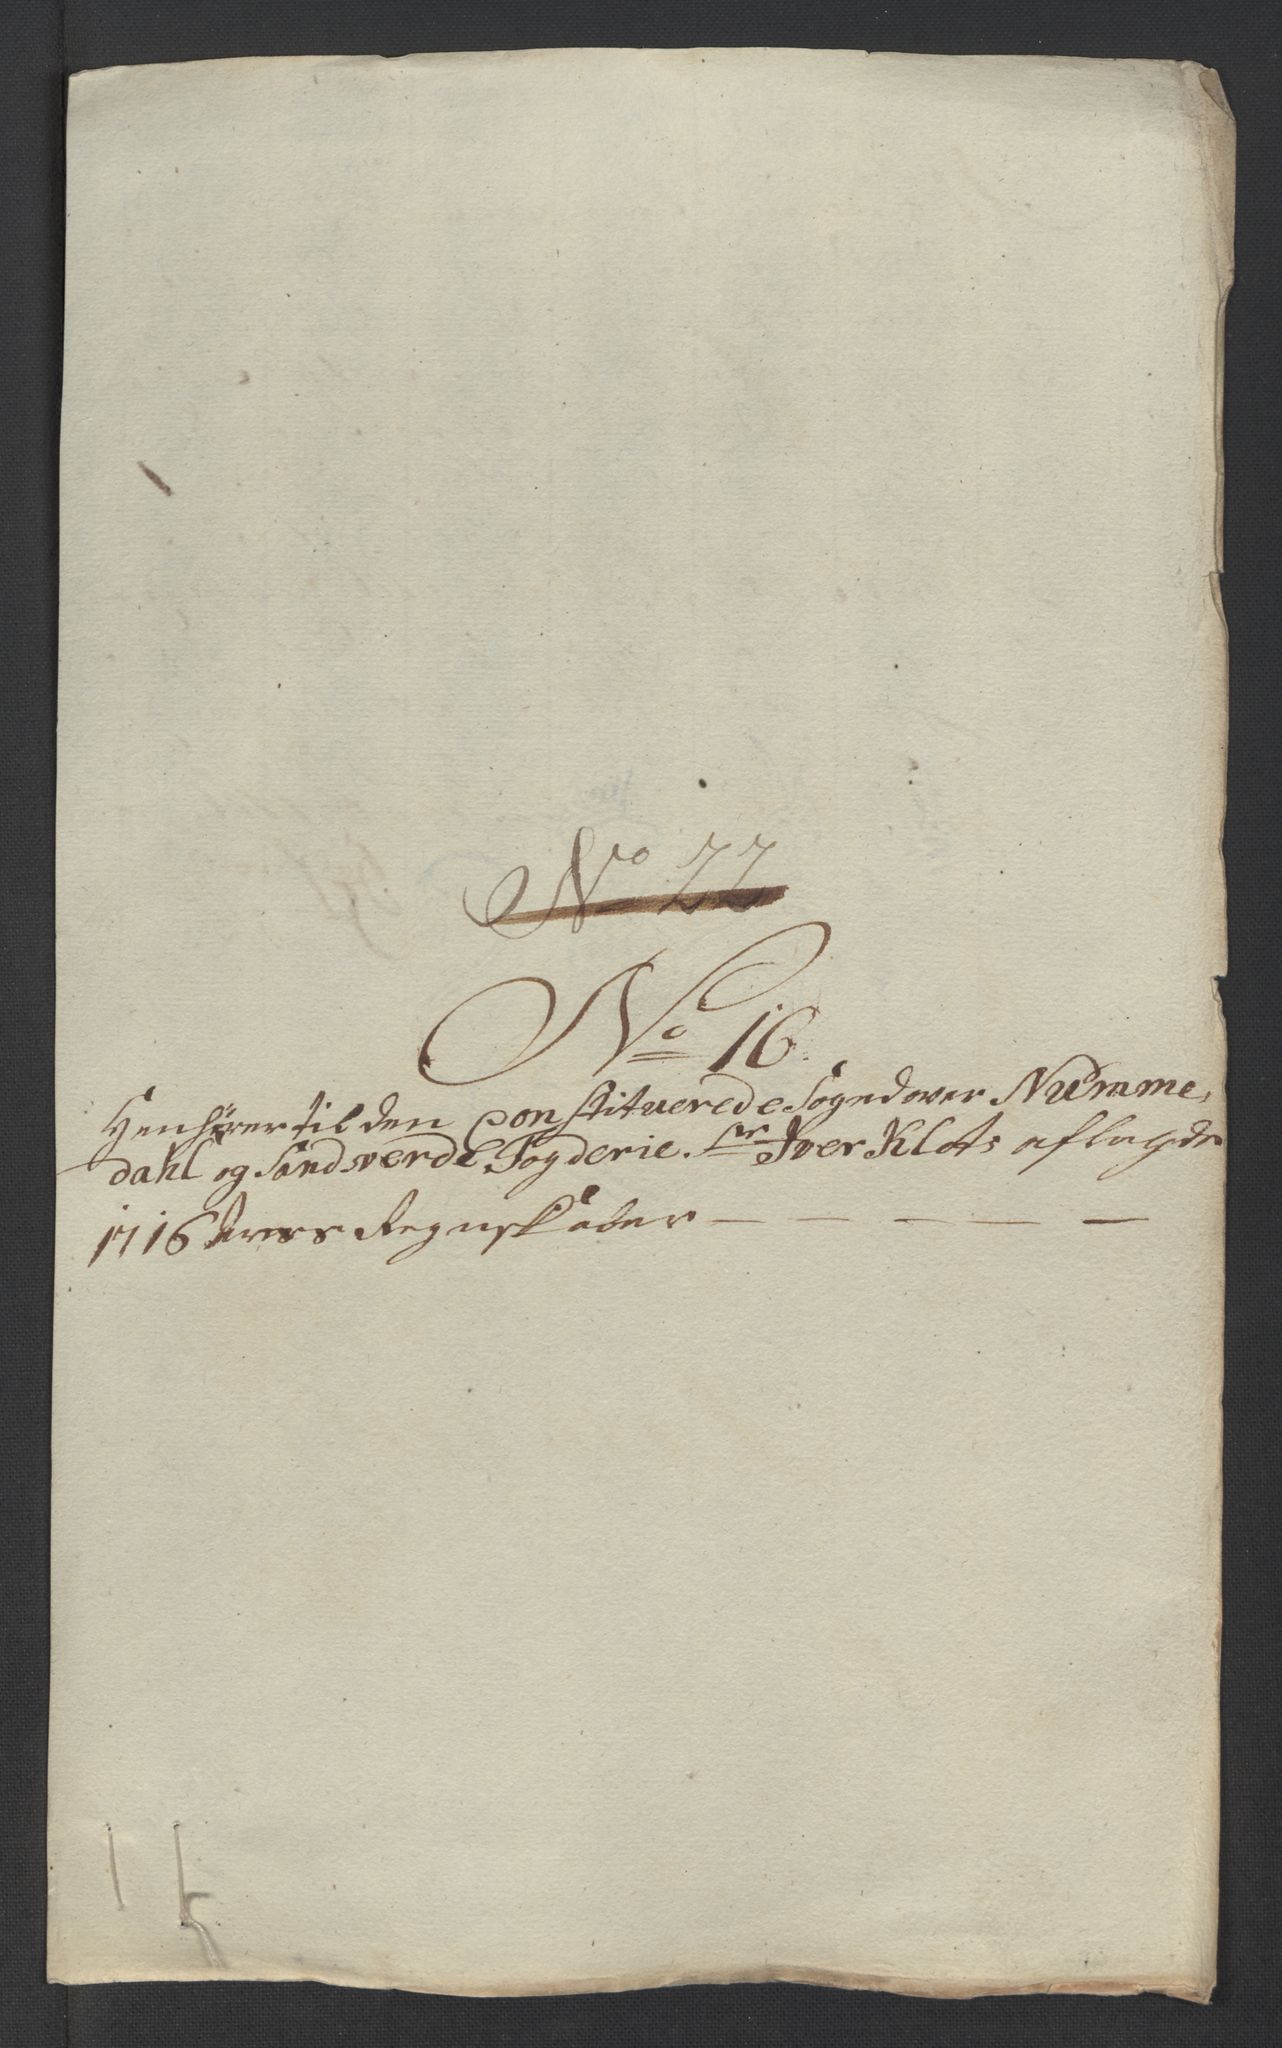 No 22
No 16
Henhører til den Constituerede Foged over Numme,
dahl og Sandsverds Fogderie. Sr Iver Klots aflagde
1716 Aars Regnskaber — — — — —